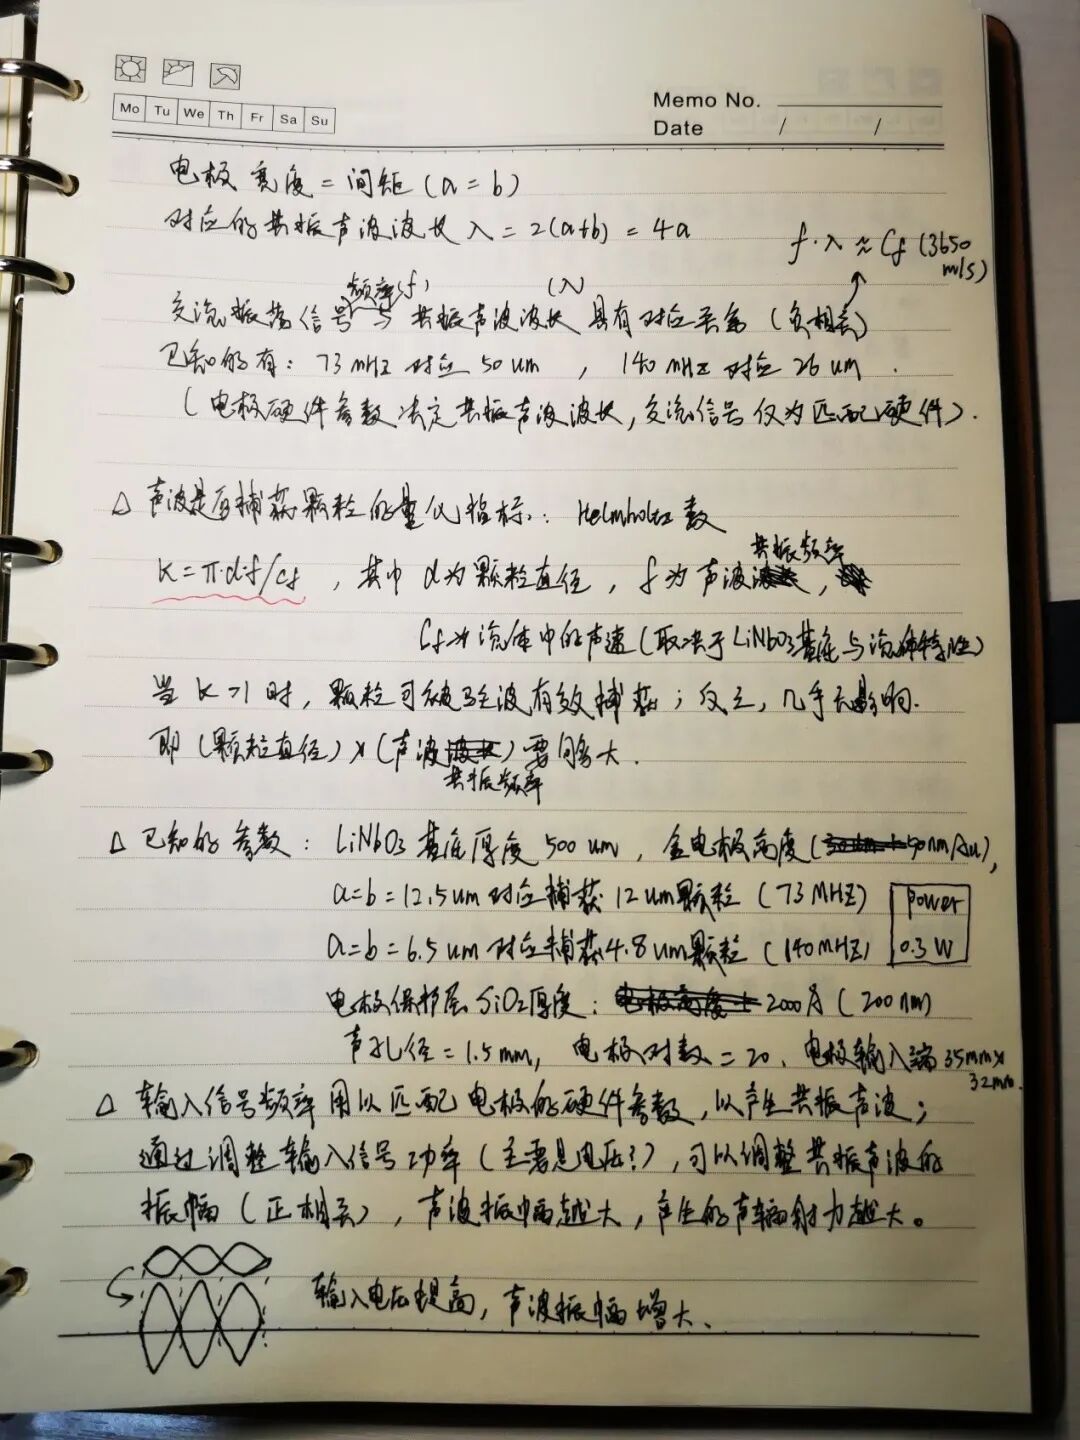 Mo Tu We Th Fr Sa Su
Memo No.
Date / /
电极宽度 = 间距 (a = b)
对应的共振声波波长 λ = 2(a+b) = 4a
f·λ ≈ Cf (3650 m/s)
频率(f) (λ)
交流振荡信号与共振声波波长具有对应关系 (负相关)
已知的有: 73 mHz 对应 50 um , 140 mHz 对应 26 um .
(电极硬件参数决定共振声波波长, 交流信号仅为匹配硬件).
△ 声波是否捕获颗粒的量化指标: Helmholtz 数
共振频率
K = π·d·f/cf , 其中 d为颗粒直径 , f 为声波 ,
Cf为流体中的声速 (取决于LiNbO3基底与流体特性)
当 K>1 时, 颗粒可被驻波有效捕获; 反之, 几乎无影响.
即 (颗粒直径) x (声波 ) 要够大.
共振频率
△ 已知的参数: LiNbO3 基底厚度 500 um , 金电极高度 ( 90nm Au),
a=b=12.5um 对应捕获 12um颗粒 (73 MHZ)
power
a=b=6.5 um 对应捕获4.8 um颗粒 (140mHZ)
0.3 W
电极保护层 SiO2厚度: 2000Å (200nm)
声孔径=1.5mm, 电极对数=20. 电极输入端 35mm x 32mm.
△ 输入信号频率用以匹配电极的硬件参数, 以产生共振声波;
通过调整输入信号功率 (主要是电压?), 可以调整共振声波的
振幅 (正相关), 声波振幅越大, 产生的声辐射力越大。
输入电压提高, 声波振幅增大.